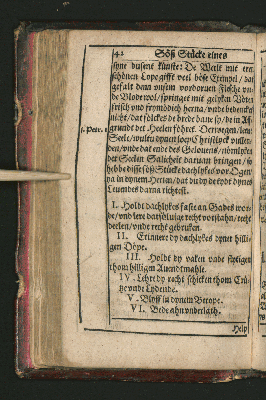 42 Söß Stücke eines
syne dusent künste: De Werlt mit erer
schönen Lope gifft veel böse Exempel / dat
gefalt dann unsem vordoruen Flesche vnde
Blode wol / springet mit gelyken Vöten
frisch vnd frymödich herna / vnde bedencket
nicht / dat sülckes de brede bane sy / de in Aff-
1. Petr. 1 grundt der Hellen föhret. Derwegen / leue
Seele / wultu dynen loep Christlyck vullen-
den / vnde dat ende des Gelouens / nömliken
der Seelen Salicheit daruan bringen / so
hebbe disse söß Stücke dachlykes vor Ogen /
va in dynem Herten / dat du dy de tydt dynes
Leuendes darna richtest.
I. Holdt dachlykes faste an Gades wor-
de / vnd lere datsüluige recht vorstahn / recht
deelen / vnde recht gebruken.
II. Erinnere dy dachlykes dyner hilli-
gen Döpe.
III. Holdt dy vaken vnde stedigen
thom hilligen Auendtmahle.
IV. Lehre dy recht schicken thom Crü-
tze vnde Lydende.
V. Blyff in dynem Berope.
VI. Bede ahn vnderlath.
Help